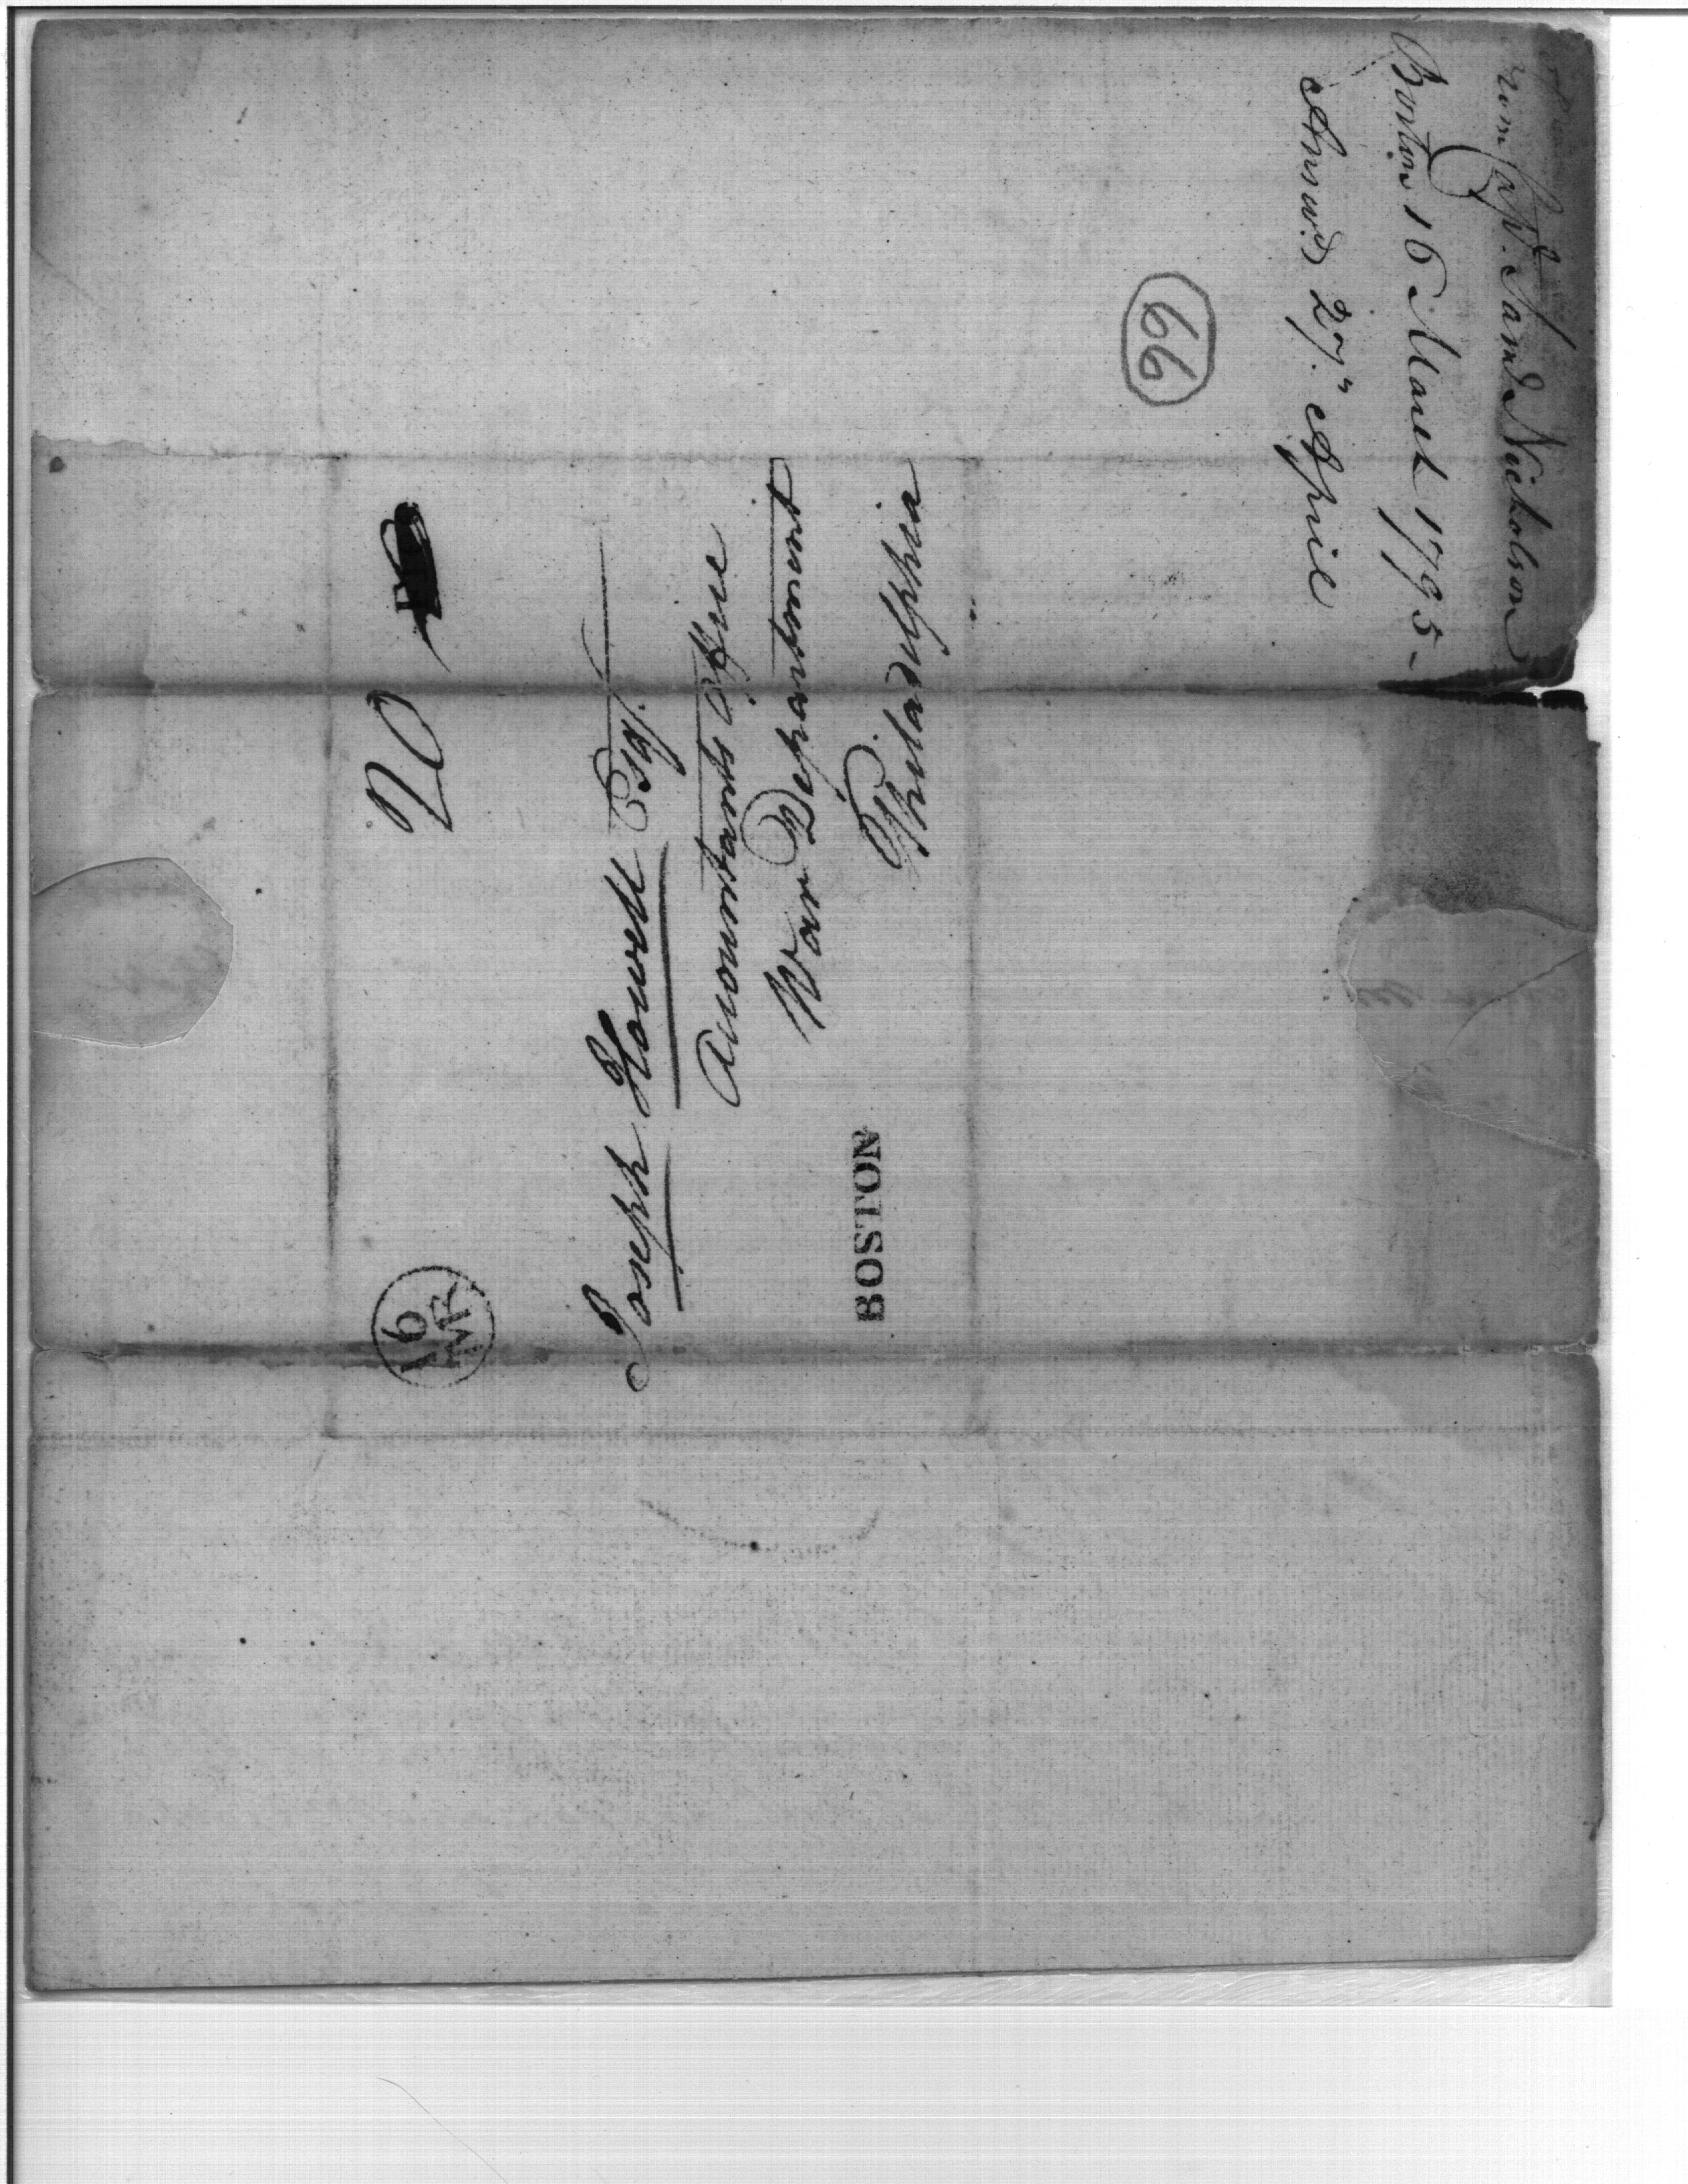 From Capt. Saml Nicholson
Boston 16 March 1795 -
Answd. 27." April
66
20
16
MR
Joseph Howell Esqr.
Accountants Office
War Department
Philadelphia
BOSTON